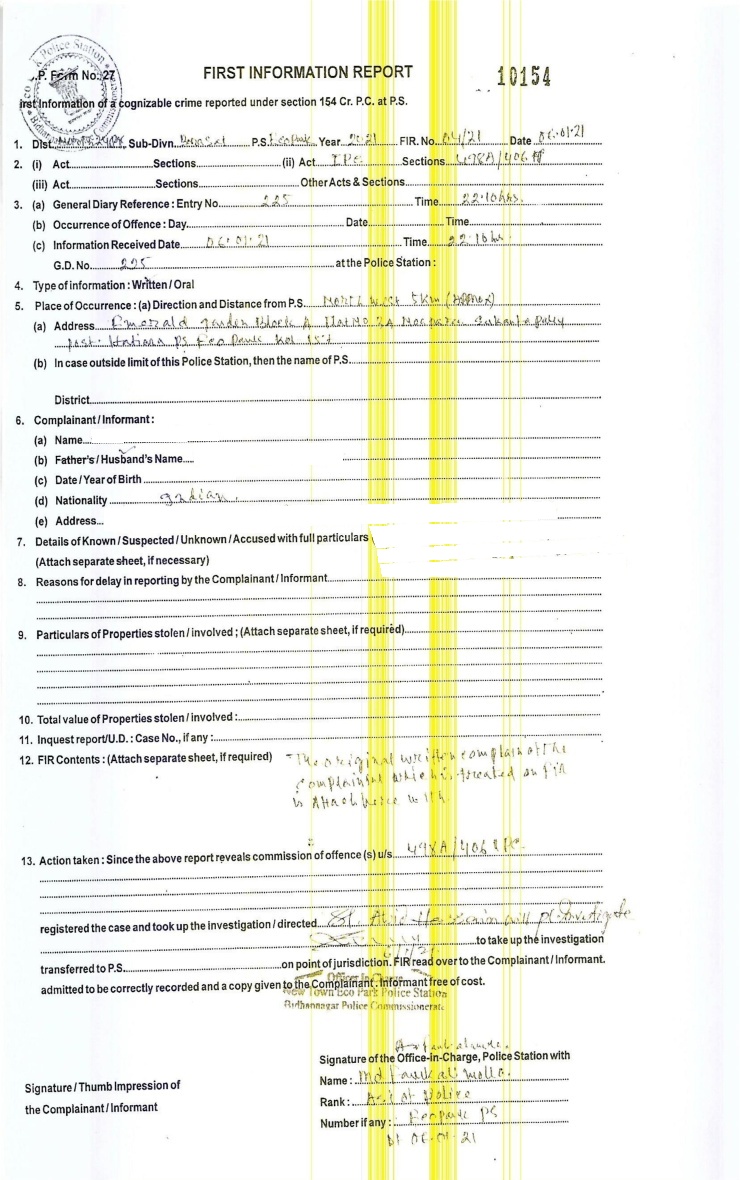 Police Station
.P. Form No. 27
FIRST INFORMATION REPORT
10154
irst Information of a cognizable crime reported under section 154 Cr. P.C. at P.S.
1. Dist. Sub-Divn. P.S. Eco Park Year 2021 FIR. No. 04/21 Date 06.01.21
2. (i) Act Sections (ii) Act IPC Sections 498A/406
(iii) Act Sections Other Acts & Sections
3. (a) General Diary Reference : Entry No. 225 Time 22.10 hrs.
(b) Occurrence of Offence : Day Date Time
(c) Information Received Date 06.01.21 Time 22.10 hrs.
G.D. No. 225 at the Police Station :
4. Type of information : Written / Oral
5. Place of Occurrence : (a) Direction and Distance from P.S. North West 5km (Approx)
(a) Address Emerald garden Block A Flat No 2A
post: Hatiara PS Eco Park Kol 157
(b) In case outside limit of this Police Station, then the name of P.S.
District
6. Complainant / Informant :
(a) Name
(b) Father's / Husband's Name
(c) Date / Year of Birth
(d) Nationality Indian.
(e) Address...
7. Details of Known / Suspected / Unknown / Accused with full particulars
(Attach separate sheet, if necessary)
8. Reasons for delay in reporting by the Complainant / Informant
9. Particulars of Properties stolen / involved ; (Attach separate sheet, if required)
10. Total value of Properties stolen / involved :
11. Inquest report/U.D. : Case No., if any :
12. FIR Contents : (Attach separate sheet, if required) The original written complain of the
complainint which is treated as FIR
is Attach here with.
13. Action taken : Since the above report reveals commission of offence (s) u/s. 498A/406 IPC
registered the case and took up the investigation / directed
to take up the investigation
transferred to P.S. on point of jurisdiction. FIR read over to the Complainant / Informant.
admitted to be correctly recorded and a copy given to the Complainant . Informant free of cost.
Officer In-Charge
New Town Eco Park Police Station
Bidhannagar Police Commissionerate
Signature of the Office-in-Charge, Police Station with
Signature / Thumb Impression of
the Complainant / Informant
Name : Md
Rank : ASI of Police
Number if any : Ecopark PS
Dt 06.01.21